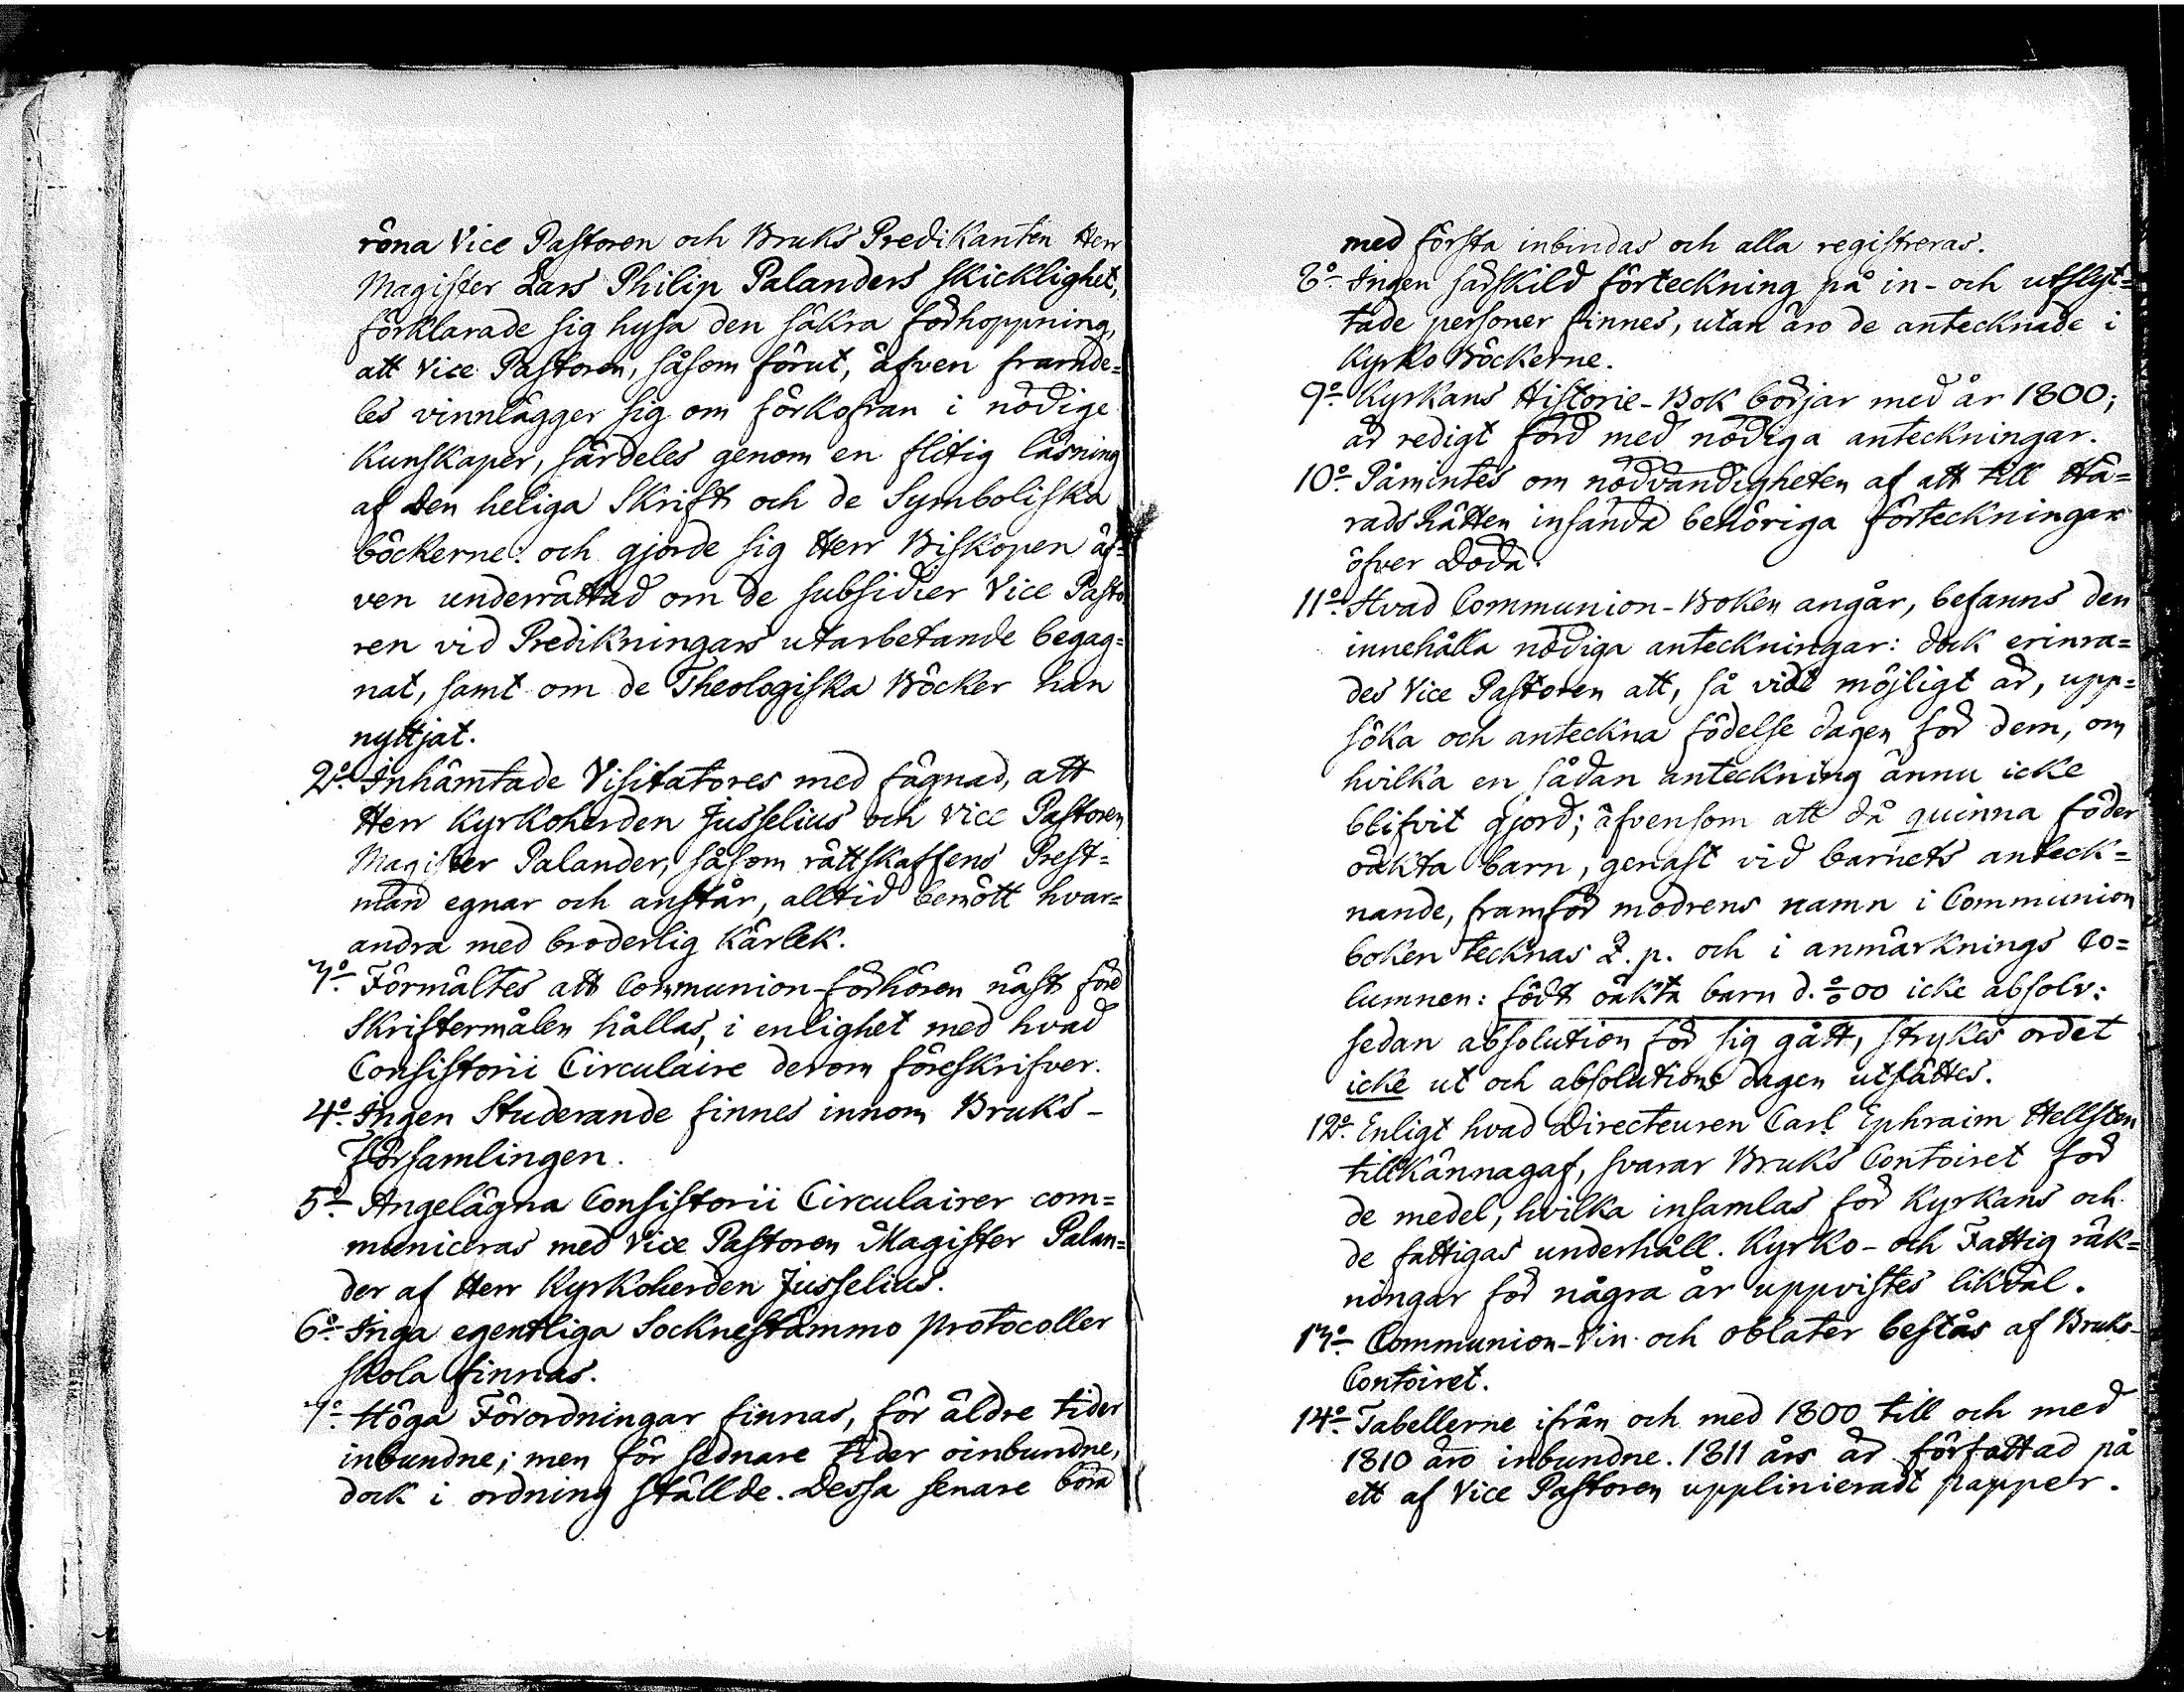 röna Vice Pastoren och Bruks Predikanten Herr
Magister Lars Philip Palanders skicklighet,
förklarade sig hysa den säkra förhoppning,
att Vice Pastoren, såsom förut, äfven framde=
les vinnlägger sig om förkofran i nödige
kunskaper, särdeles genom en flitig läsning
af den heliga Skrift och de Symboliska
böckerne: och gjorde sig Herr Biskopen äf=
ven underrättad om de subsidier Vice Pasto
ren vid Predikningars utarbetande begag=
nat, samt om de Theologiska Böcker han
nyttjat.
2o. Inhämtade Visitatores med fägnad, att
Herr Kyrkoherden Jusselius och Vice Pastoren
Magister Palander, såsom rättskaffens Prest=
män egnar och anstår, alltid bemött hvar=
andra med broderlig kärlek.
3o. Förmältes att Communion-förhören näst före
Skriftermålen hållas, i enlighet med hvad
Consistorii Circulaire derom föreskrifver.
4o. Ingen Studerande finnes innom Bruks-
Församlingen.
5o. Angelägna Consistorii Circulairer com=
municeras med Vice Pastoren Magister Palan=
der af Herr Kyrkoherden Jusselius.
6o. Inga egentliga Socknestämmo protocoller
skola finnas.
7o. Höga Förordningar finnas, för äldre tider
inbundne; men för sednare tider oinbundne,
dock i ordning ställde. Dessa senare böra
med första inbindas och alla registreras.
8o. Ingen särskild förteckning på in- och utflyt=
tade personer finnes, utan äro de antecknade i
Kyrko Böckerne.
9o. Kyrkans Historie-Bok börjar med år 1800;
är redigt förd med nödiga anteckningar.
10o. Påmintes om nödvändigheten af att till Hä=
rads Rätten insända behöriga förteckningar
öfver Döda.
11o. Hvad Communion-Boken angår, befanns den
innehålla nödiga anteckningar: dock erinra=
des Vice Pastoren att, så vidt möjligt är, upp=
söka och anteckna födelse dagen för dem, om
hvilka en sådan anteckning ännu icke
blifvit gjord; äfvensom att då quinna föder
oäkta barn, genast vid barnets anteck=
nande, framför modrens namn i Communion
boken tecknas L. p. och i anmärknings Co=
lumnen: födt oäkta barn d. o/o 00 icke absolv:
sedan absolution för sig gått, strykes ordet
icke ut och absolutions dagen utsättes.
12o. Enligt hvad Directeuren Carl Ephraim Hellsten
tillkännagaf, svarar Bruks Contoiret för
de medel, hvilka insamlas för Kyrkans och
de fattigas underhåll. Kyrko- och Fattig räk=
ningar för några år uppvistes likväl.
13o. Communion-Vin och oblater bestås af Bruks-
Contoiret.
14o. Tabellerne ifrån och med 1800 till och med
1810 äro inbundne. 1811 års är författad på
ett af Vice Pastoren upplinieradt papper.